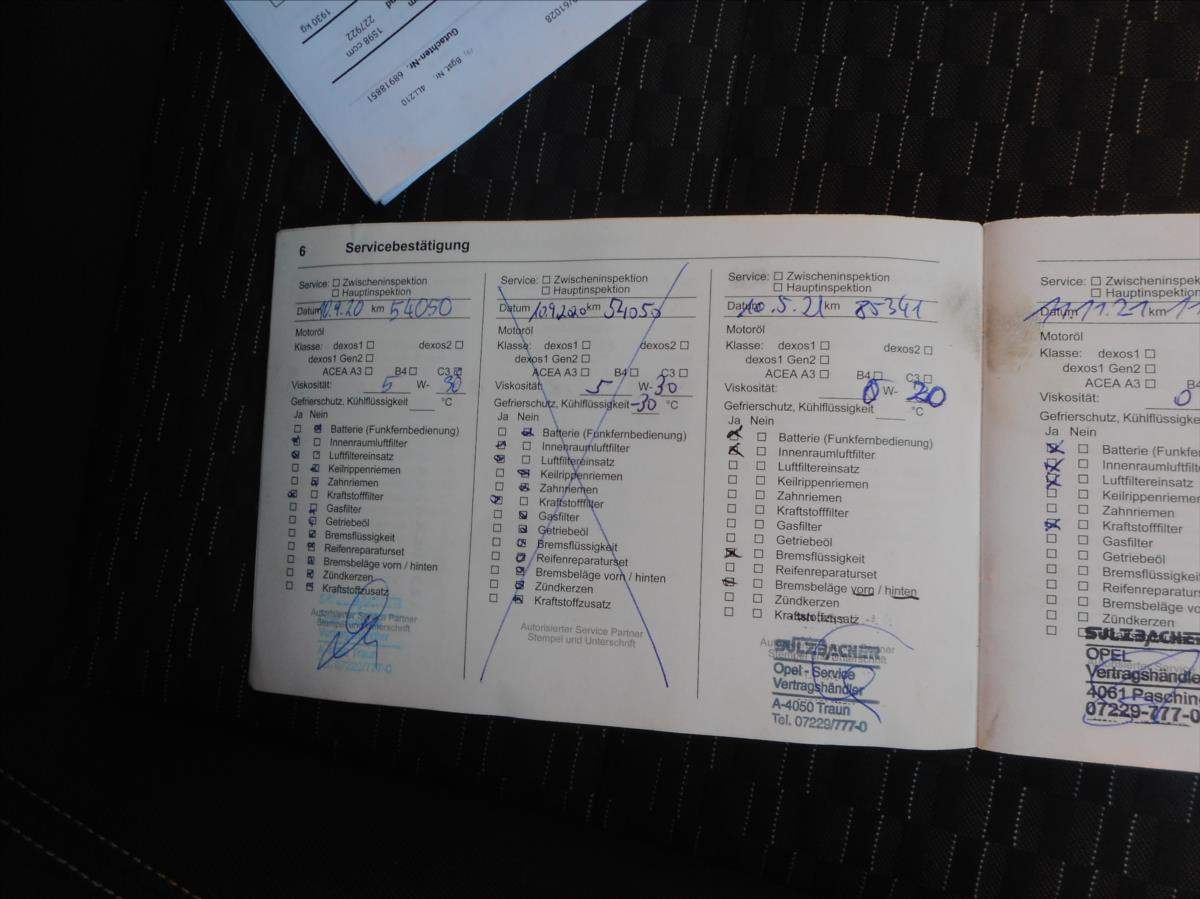 1930 kg
227922
1598 ccm
Gutachten-Nr. 68918851
Bgst. Nr. 4LL210
61028
6 Servicebestätigung
Service: Zwischeninspektion
Hauptinspektion
Datum 10.9.20 km 54050
Motoröl
Klasse: dexos1 dexos2
dexos1 Gen2
ACEA A3 B4 C3
Viskosität: 5 W- 30
Gefrierschutz, Kühlflüssigkeit °C
Ja Nein
Batterie (Funkfernbedienung)
Innenraumluftfilter
Luftfiltereinsatz
Keilrippenriemen
Zahnriemen
Kraftstofffilter
Gasfilter
Getriebeöl
Bremsflüssigkeit
Reifenreparaturset
Bremsbeläge vorn / hinten
Zündkerzen
Kraftstoffzusatz
Autorisierter Service Partner
Stempel und Unterschrift
Traun
07229/777-0
Service: Zwischeninspektion
Hauptinspektion
Datum 10.9.2020 km 54050
Motoröl
Klasse: dexos1 dexos2
dexos1 Gen2
ACEA A3 B4 C3
Viskosität: 5 W-30
Gefrierschutz, Kühlflüssigkeit -30 °C
Ja Nein
Batterie (Funkfernbedienung)
Innenraumluftfilter
Luftfiltereinsatz
Keilrippenriemen
Zahnriemen
Kraftstofffilter
Gasfilter
Getriebeöl
Bremsflüssigkeit
Reifenreparaturset
Bremsbeläge vorn / hinten
Zündkerzen
Kraftstoffzusatz
Autorisierter Service Partner
Stempel und Unterschrift
Service: Zwischeninspektion
Hauptinspektion
Datum 10.5.21 km 85341
Motoröl
Klasse: dexos1 dexos2
dexos1 Gen2
ACEA A3 B4 C3
Viskosität: 0 W- 20
Gefrierschutz, Kühlflüssigkeit °C
Ja Nein
Batterie (Funkfernbedienung)
Innenraumluftfilter
Luftfiltereinsatz
Keilrippenriemen
Zahnriemen
Kraftstofffilter
Gasfilter
Getriebeöl
Bremsflüssigkeit
Reifenreparaturset
Bremsbeläge vorn / hinten
Zündkerzen
Kraftstoffzusatz
Stempel und Unterschrift
SULZBACHER
Opel-Service
Vertragshändler
A-4050 Traun
Tel. 07229/777-0
Service: Zwischeninspek
Hauptinspektion
Datum 11.11.21 km
Motoröl
Klasse: dexos1
dexos1 Gen2
ACEA A3
Viskosität: 0
Gefrierschutz, Kühlflüssigke
Ja Nein
Batterie (Funkfernbe
Innenraumluftfilter
Luftfiltereinsatz
Keilrippenriemen
Zahnriemen
Kraftstofffilter
Gasfilter
Getriebeöl
Bremsflüssigkeit
Reifenreparaturse
Bremsbeläge vorn
Zündkerzen
SULZBACHER
OPEL
Vertragshändle
4061 Pasching
07229-777-0